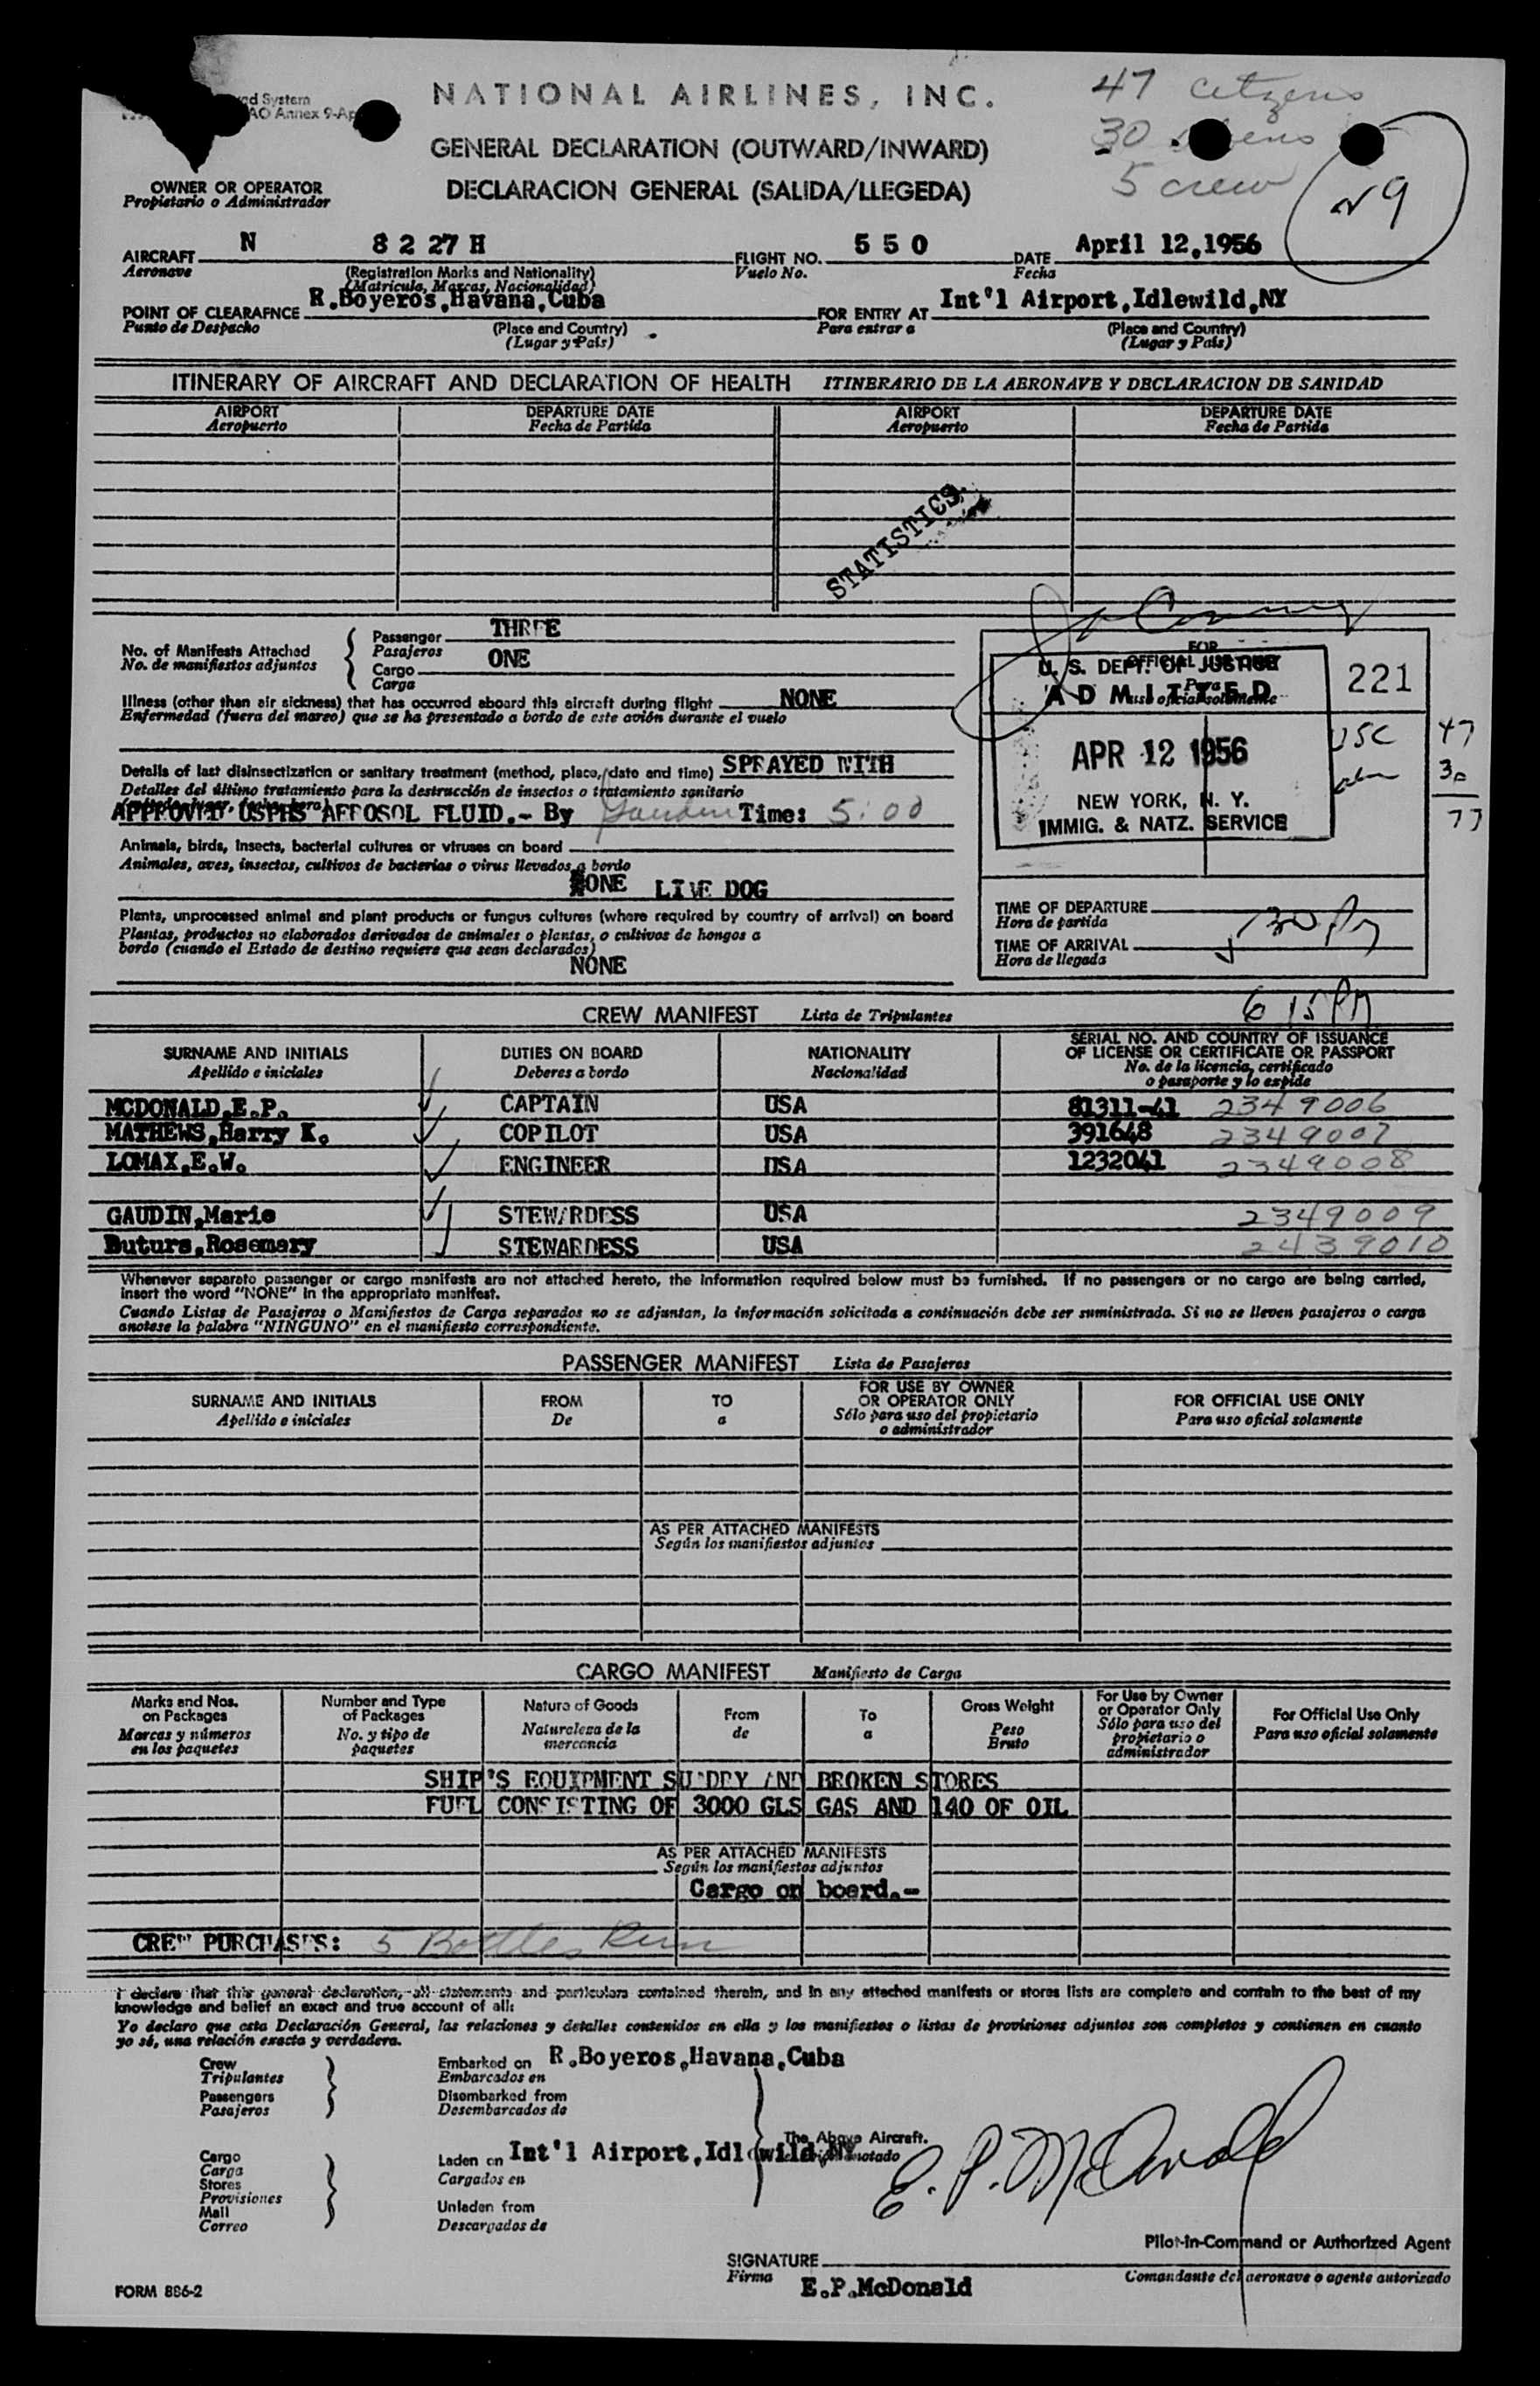 NATIONAL AIRLINES, INC.
47 citizens
30
5 crew
N9
GENERAL DECLARATION (OUTWARD/INWARD)
DECLARACION GENERAL (SALIDA/LLEGEDA)
System
AO Annex 9-Ap
OWNER OR OPERATOR
Propietario o Administrador
AIRCRAFT N 8227H FLIGHT NO. 550 DATE April 12,1956
Aeronave (Registration Marks and Nationality) Vuelo No. Fecha
(Matricula, Marcas, Nacionalidad)
POINT OF CLEARAFNCE R.Boyeros,Havana,Cuba FOR ENTRY AT Int'l Airport,Idlewild,NY
Punto de Despacho (Place and Country) Para entrar a (Place and Country)
(Lugar y País) (Lugar y País)
ITINERARY OF AIRCRAFT AND DECLARATION OF HEALTH ITINERARIO DE LA AERONAVE Y DECLARACION DE SANIDAD
AIRPORT DEPARTURE DATE AIRPORT DEPARTURE DATE
Aeropuerto Fecha de Partida Aeropuerto Fecha de Partida
STATISTICS
No. of Manifests Attached Passenger THREE
No. de manifiestos adjuntos Pasajeros
Cargo ONE
Carga
Illness (other than air sickness) that has occurred aboard this aircraft during flight NONE
Enfermedad (fuera del mareo) que se ha presentado a bordo de este avión durante el vuelo
Details of last disinsectization or sanitary treatment (method, place, date and time) SPRAYED WITH
Detalles del último tratamiento para la destrucción de insectos o tratamiento sanitario
APPROVED USPHS AEROSOL FLUID.- By Gaudin Time: 5:00
Animals, birds, insects, bacterial cultures or viruses on board
Animales, aves, insectos, cultivos de bacterias o virus llevados a bordo
ONE LIVE DOG
Plants, unprocessed animal and plant products or fungus cultures (where required by country of arrival) on board
Plantas, productos no elaborados derivados de animales o plantas, o cultivos de hongos a
bordo (cuando el Estado de destino requiere que sean declarados)
NONE
FOR
OFFICIAL USE ONLY
Para
uso oficial solamente
U. S. DEPT. OF JUSTICE
ADMITTED
APR 12 1956
NEW YORK, N. Y.
IMMIG. & NATZ. SERVICE
221
USC 47
30
77
TIME OF DEPARTURE
Hora de partida
TIME OF ARRIVAL
Hora de llegada
6 15 PM
CREW MANIFEST Lista de Tripulantes
SURNAME AND INITIALS DUTIES ON BOARD NATIONALITY SERIAL NO. AND COUNTRY OF ISSUANCE
OF LICENSE OR CERTIFICATE OR PASSPORT
Apellido e iniciales Deberes a bordo Nacionalidad No. de la licencia, certificado
o pasaporte y lo expide
MCDONALD,E.P. CAPTAIN USA 81311-41 2349006
MATHEWS,Harry K. COPILOT USA 391648 2349007
LOMAX,E.W. ENGINEER USA 1232041 2349008
GAUDIN,Marie STEWARDESS USA 2349009
Buturs,Rosemary STEWARDESS USA 2439010
Whenever separate passenger or cargo manifests are not attached hereto, the information required below must be furnished. If no passengers or no cargo are being carried,
insert the word "NONE" in the appropriate manifest.
Cuando Listas de Pasajeros o Manifiestos de Carga separados no se adjuntan, la información solicitada a continuación debe ser suministrada. Si no se lleven pasajeros o carga
anotese la palabra "NINGUNO" en el manifiesto correspondiente.
PASSENGER MANIFEST Lista de Pasajeros
SURNAME AND INITIALS FROM TO FOR USE BY OWNER OR OPERATOR ONLY FOR OFFICIAL USE ONLY
Apellido e iniciales De a Sólo para uso del propietario o administrador Para uso oficial solamente
AS PER ATTACHED MANIFESTS
Según los manifiestos adjuntos
CARGO MANIFEST Manifiesto de Carga
Marks and Nos. on Packages Number and Type of Packages Nature of Goods From To Gross Weight For Use by Owner or Operator Only For Official Use Only
Marcas y números en los paquetes No. y tipo de paquetes Naturaleza de la mercancia de a Peso Bruto Sólo para uso del propietario o administrador Para uso oficial solamente
SHIP'S EQUIPMENT SUNDRY AND BROKEN STORES
FUEL CONSISTING OF 3000 GLS GAS AND 140 OF OIL
AS PER ATTACHED MANIFESTS
Según los manifiestos adjuntos
Cargo on board.-
CREW PURCHASES: 5 Bottles Rum
I declare that this general declaration, all statements and particulars contained therein, and in any attached manifests or stores lists are complete and contain to the best of my
knowledge and belief an exact and true account of all:
Yo declaro que esta Declaración General, las relaciones y detalles contenidos en ella y los manifiestos o listas de provisiones adjuntos son completos y contienen en cuanto
yo sé, una relación exacta y verdadera.
Crew Embarked on R.Boyeros,Havana,Cuba
Tripulantes Embarcados en
Passengers Disembarked from
Pasajeros Desembarcados de
The Above Aircraft.
Cargo Laden on Int'l Airport,Idlewild,NY
Carga Cargados en
Stores
Provisiones Unladen from
Mail Descargados de
Correo
E. P. McDonald
Pilot-in-Command or Authorized Agent
SIGNATURE
Firma E.P.McDonald Comandante del aeronave o agente autorizado
FORM 886-2